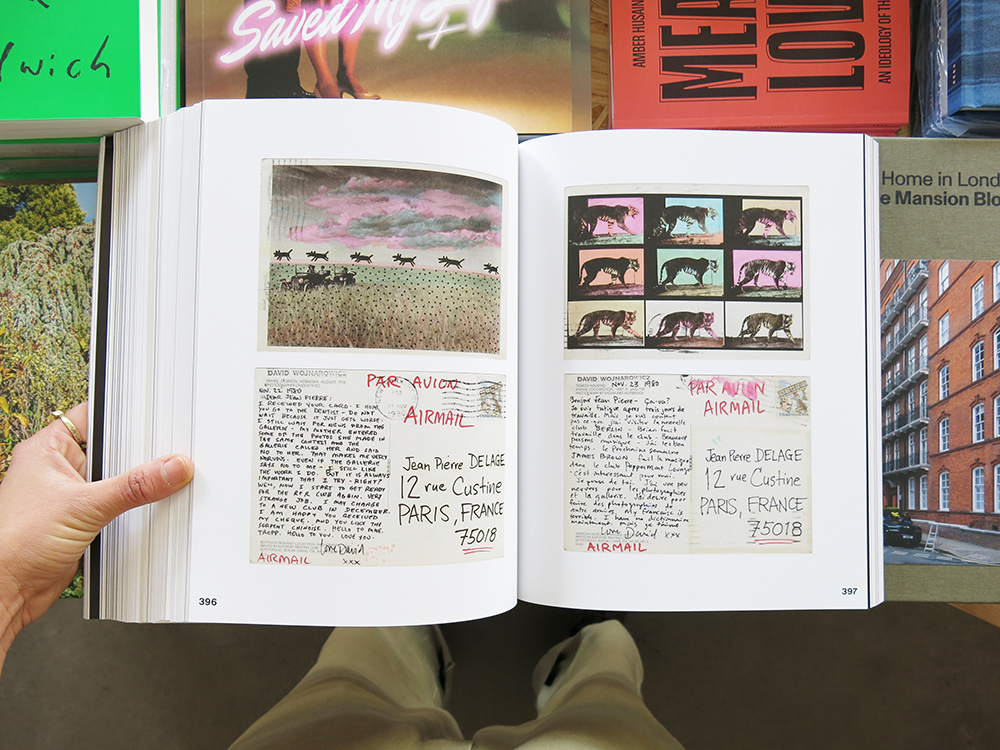 wich
Saved My
AMBER HUSAIN
LOV
AN IDEOLOGY OF TH
Home in Lond
e Mansion Blo
DAVID WOJNAROWICZ
NOV. 22 1980
DEAR JEAN PIERRE:
I RECEIVED YOUR CARD. I HOPE
YOU GO TO THE DENTIST - DO NOT
WAIT BECAUSE IT JUST GETS WORSE.
I STILL WAIT FOR NEWS FROM THE
GALLERIE - MY MOTHER ENTERED
SOME OF THE PHOTOS SHE MADE IN
THE SAME CONTEST AND THE
GALLERIE CALLED HER AND SAID
NO TO HER. THAT MAKES ME VERY
NERVOUS. EVEN IF THE GALLERIE
SAYS NO TO ME - I STILL LIKE
THE WORK I DO. BUT IT IS ALWAYS
IMPORTANT THAT I TRY - RIGHT?
WELL, NOW I START TO GET READY
FOR THE CLUB AGAIN. VERY
STRANGE JOB. I MAY CHANGE
TO A NEW CLUB IN DECEMBER.
I AM HAPPY YOU RECEIVED
MY CHEQUE. AND YOU LIKE THE
SERPENT CHINOISE. HELLO TO
HELLO TO YOU. LOVE YOU.
Love David
xxx
AIRMAIL
PAR AVION
AIRMAIL
Jean Pierre DELAGE
12 rue Custine
PARIS, FRANCE
75018
396
DAVID WOJNAROWICZ
NOV. 23 1980
Bonjour Jean Pierre - Ça-va?
Je suis fatigué apres trois jours de
travaille. Mais je suis content
parce que j'ai visiter la nouvelle
club BERLIN - Brian fait
travaille dans le club. Beaucoup
musique et les bon
temps. Le prochaine semaine
JAMES BROWN fait la musique
dans le club Peppermint Lounge
- c'est interessant pour moi.
nerveux pour les photographies
et la gallerie. J'ai desire pour
faire des photographies de
My Français is
terrible. I have un dictionnaire
maintenant.
Love David xxx
AIRMAIL
PAR AVION
AIRMAIL
Jean Pierre DELAGE
12 rue Custine
PARIS, FRANCE
75018
397